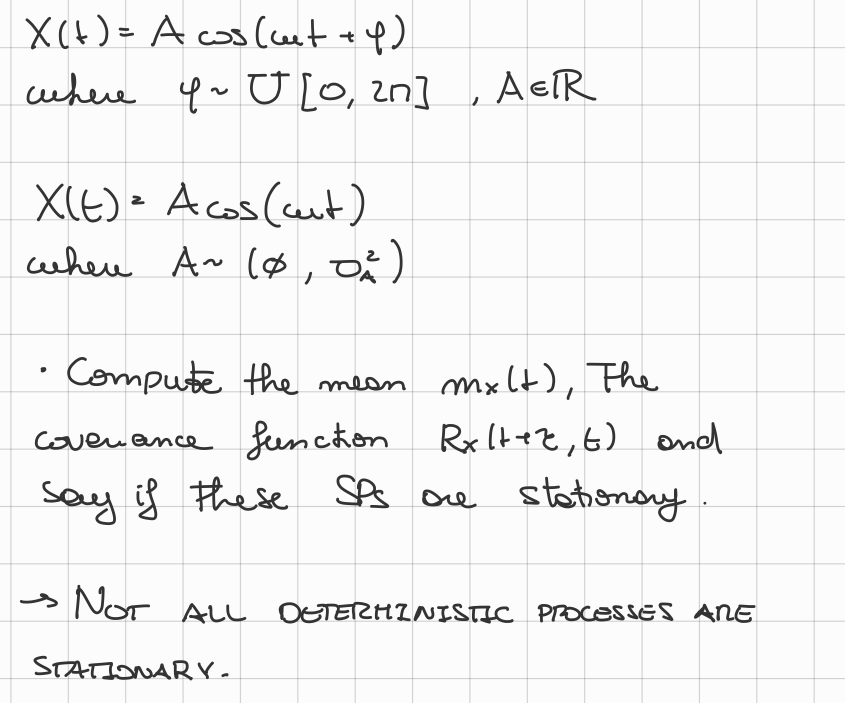 X(t) = A cos(ωt + φ)
where φ ~ U [0, 2π] , A ∈ ℝ
X(t) = A cos(ωt)
where A ~ (0, σ_A²)
· Compute the mean mx(t), The
covariance function Rx(t+τ, t) and
say if these SPs are stationary.
→ NOT ALL DETERMINISTIC PROCESSES ARE
STATIONARY.